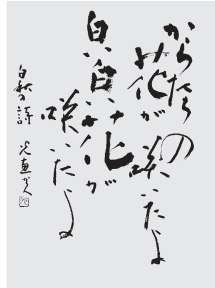 からたちの
花が咲いたよ
白い白い
花が
咲いたよ
白秋の詩